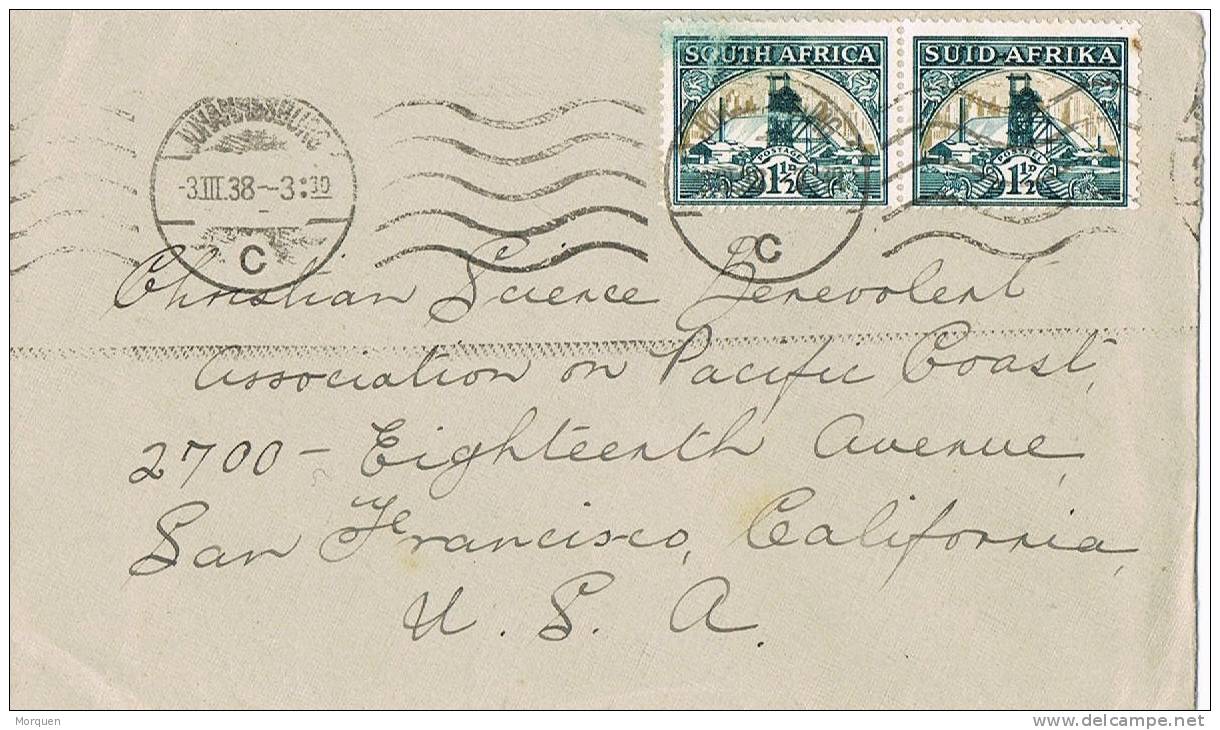 SOUTH AFRICA
POSTAGE
1½D
SUID-AFRIKA
POSSEËL
1½D
JOHANNESBURG
-3.III.38-3:30
C
C
Christian Science Benevolent
Association on Pacific Coast,
2700 - Eighteenth Avenue,
San Francisco, California,
U. S. A.
Morquen
www.delcampe.net